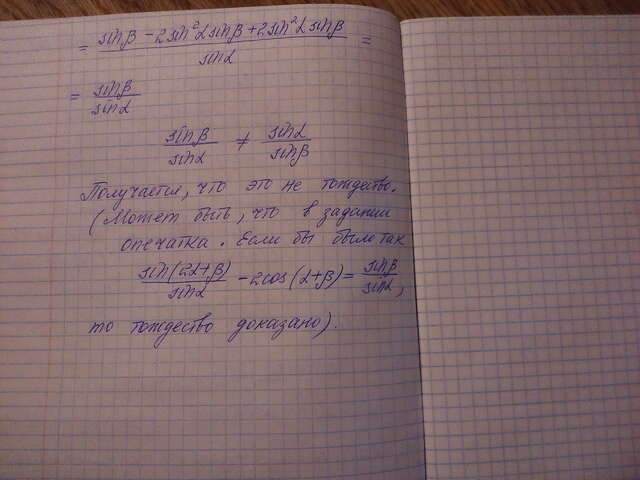 = (sinβ - 2sin²α sinβ + 2sin²α sinβ)/sinα =
= sinβ/sinα
sinβ/sinα ≠ sinα/sinβ
Получается, что это не тождество.
(Может быть, что в задании
опечатка. Если бы было так
sin(2α+β)/sinα - 2cos(α+β) = sinβ/sinα,
то тождество доказано).